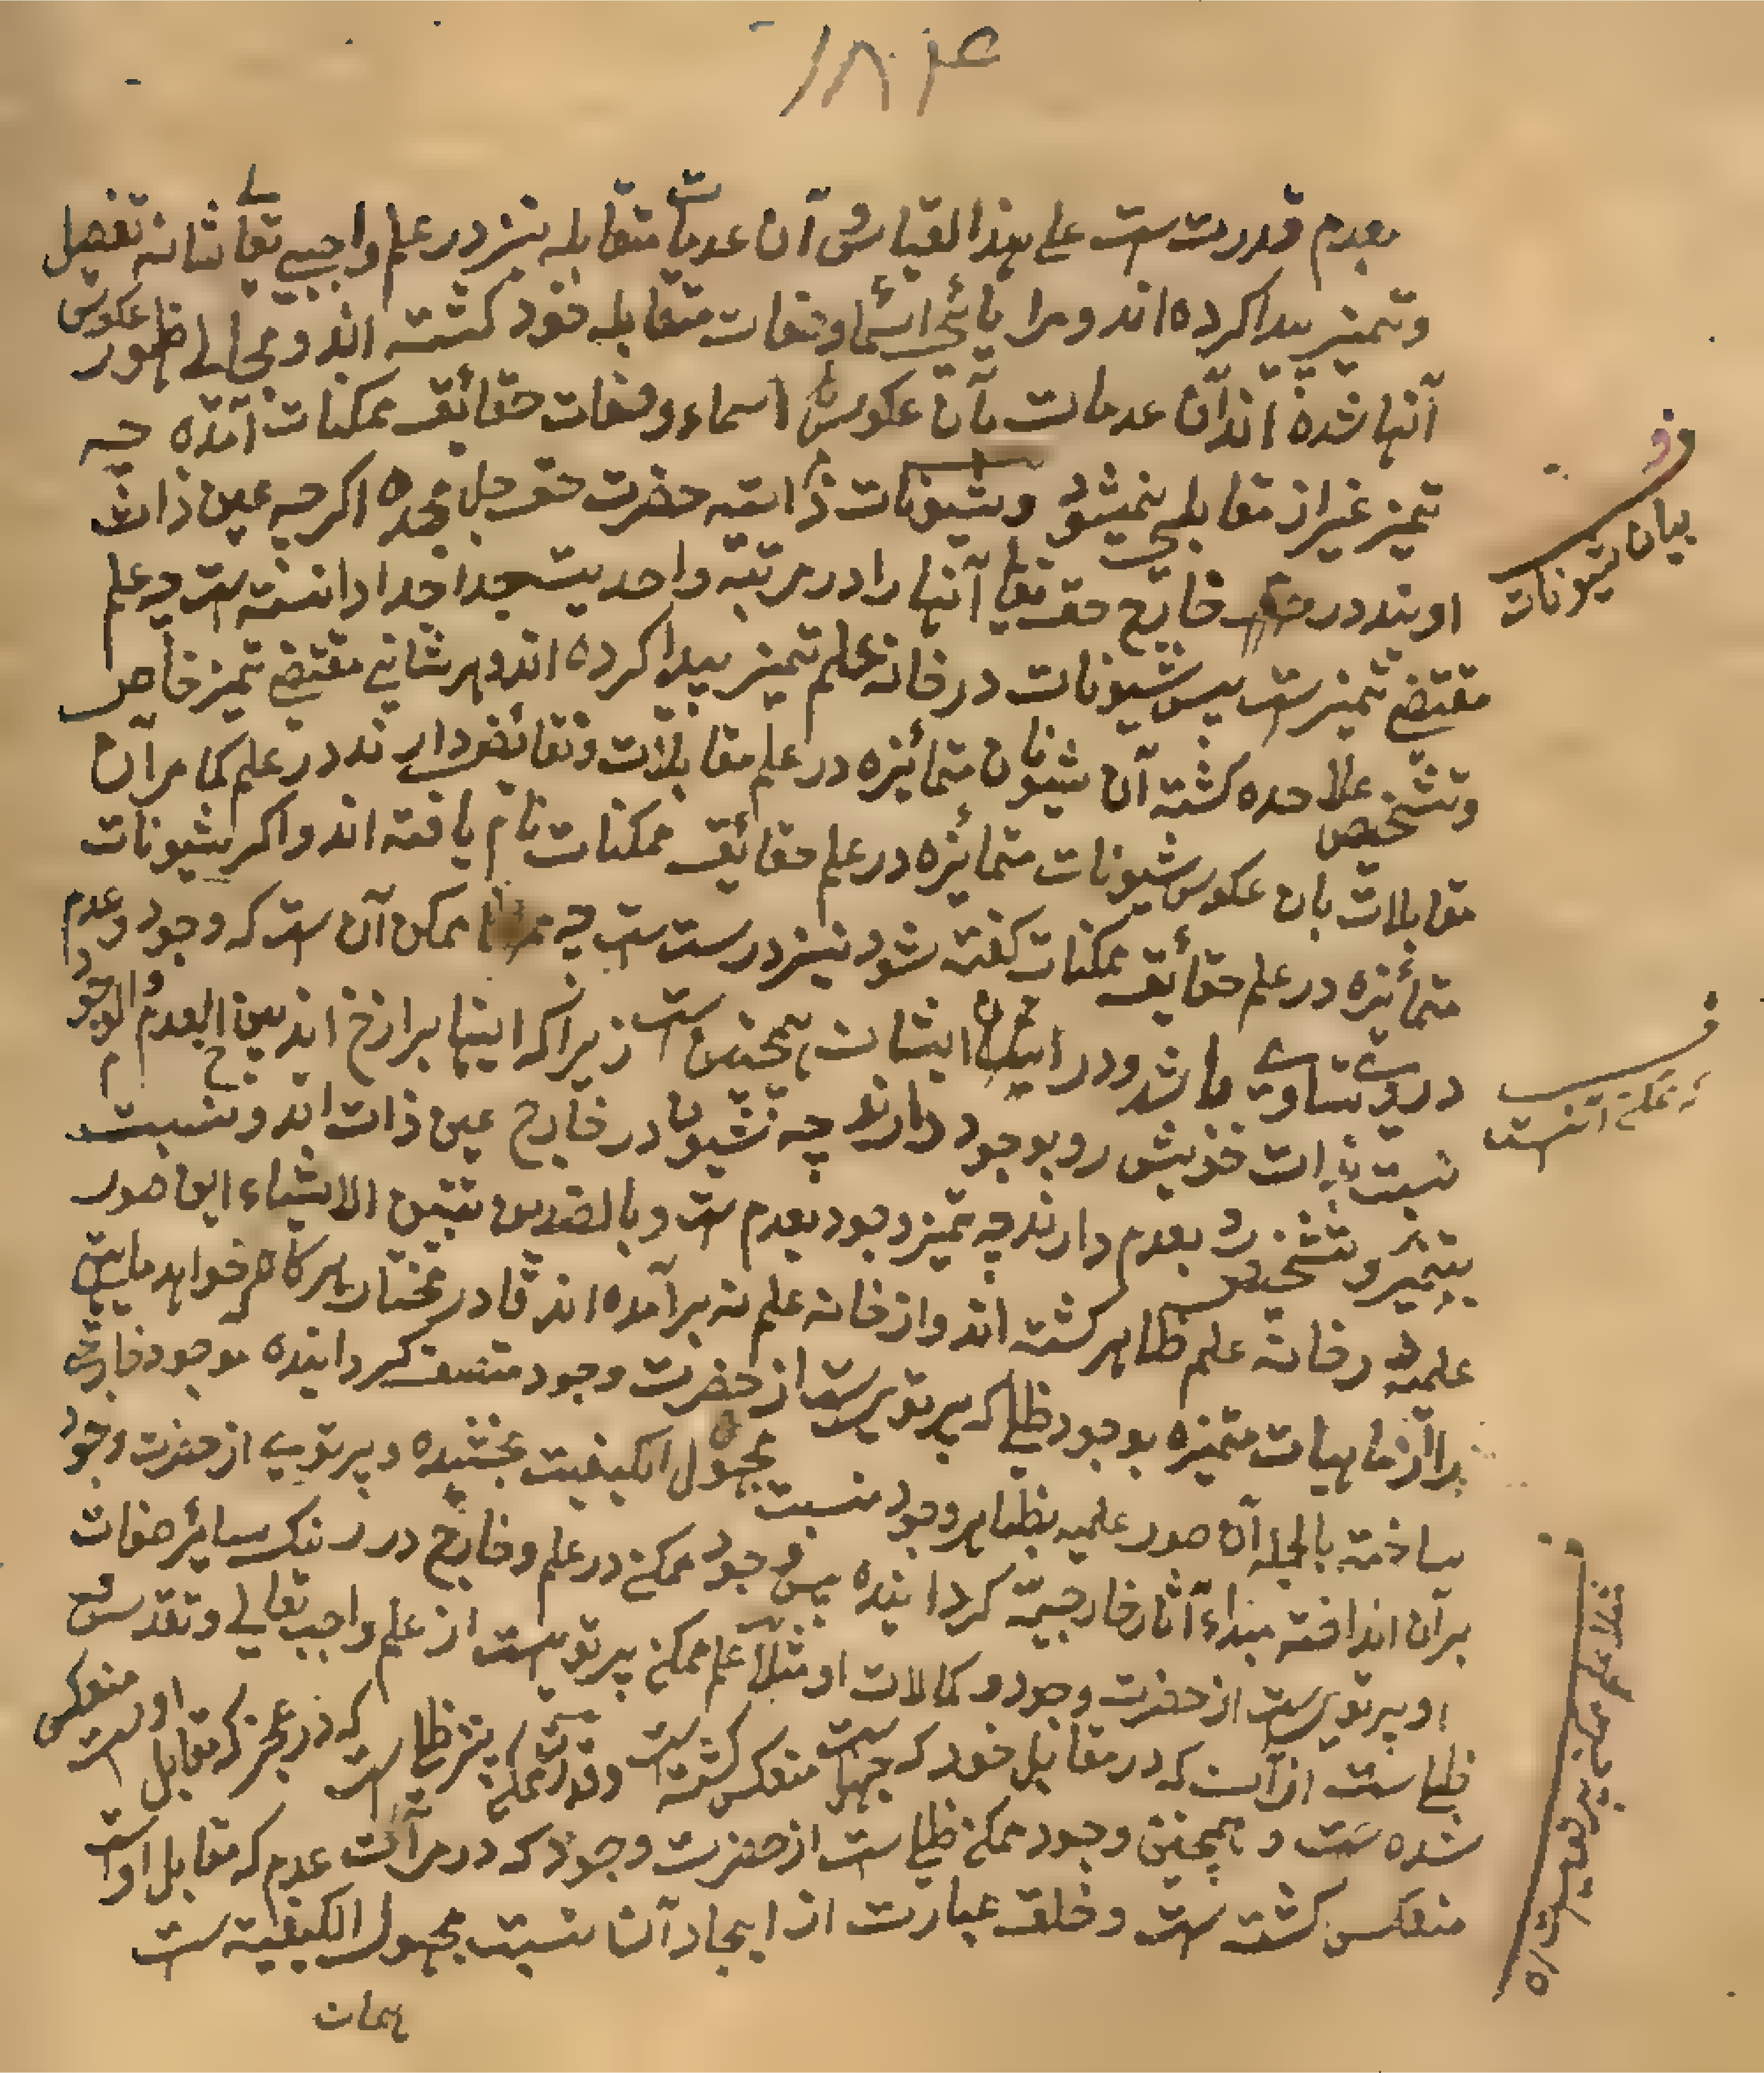 ۱۸۰۴
بعدم قدرت ست علی هذا القیاس آن عدمات متقابله نیز در علم واجبی تعالی شانه تفصیل
و تمیز پیدا کرده اند و مرایائی اسما و صفات متقابله خود گشته اند و مجالی ظهور عکوس
آنها شده اند آن عدمات بآن عکوس اسماء و صفات حقائق ممکنات آمده چه
تمیز غیر از مقابلی نمیشود و شیونات ذاتیه حضرت حق جل مجده اگرچه عین ذات
اویند در خارج حق تعا آنها را در مرتبه واحدیت جدا جدا دانسته ست چه علم
مقتضی تمیز ست پس شیونات در خانه علم تمیز پیدا کرده اند و هر شانی مقتضی تمیز خاص
و تشخیص علاحده گشته آن شیونات متمائزه در علم مقابلات و نقائض دارند در علم کما مر آن
مقابلات بان عکوس شیونات متمائزه در علم حقائق ممکنات نام یافته اند و اگر شیونات
متمائزه در علم حقائق ممکنات گفته شود نیز درست ست چه ممکن آن ست که وجود و عدم
در وی تساوی باشد و در ایشان همچنین ست زیراکه اینها برازخ اند بین العدم والوجود
نسبت بذات خویش رو بوجود دارند چه شیونا در خارج عین ذات اند و نسبت
بتمیز و تشخیص رو بعدم دارند چه تمیز وجود بعدم ست و بالضد تتبین الاشیاء این صور
علمیه در خانه علم ظاهر گشته اند و از خانه علم نه برآمده اند قادر مختار هر کاه خواهد ماهیتی
را از ماهیات متمیزه بوجود ظلی که پرتویست از حضرت وجود متصف گردانیده موجود خارجی
ساخته بالجمله آن صور علمیه بظاهر وجود نسبت مجهول الکیفیت بخشیده و پرتوی از حضرت وجود
بر آن انداخته مبداء آثار خارجیه گردانیده پس وجود ممکن در علم و خارج در رنک سائر صفات
او پرتویست از حضرت وجود و کمالات او مثلا علم ممکن پرتویست از علم واجب تعالی و تقدس
ظلی ست از آن که در مقابل خود که جهل ست منعکس گشته ست و قدرت ممکن نیز ظلی ست که در عجز که مقابل اوست منعکس
شده ست و همچنین وجود ممکن ظلی ست از حضرت وجود که در مرآت عدم که مقابل اوست
منعکس گشته ست و خلق عبارت از ایجاد آن نسبت مجهول الکیفیته ست
همان
بیان شیونات
که ممکن آنست
مثلا علم ممکن پرتویست